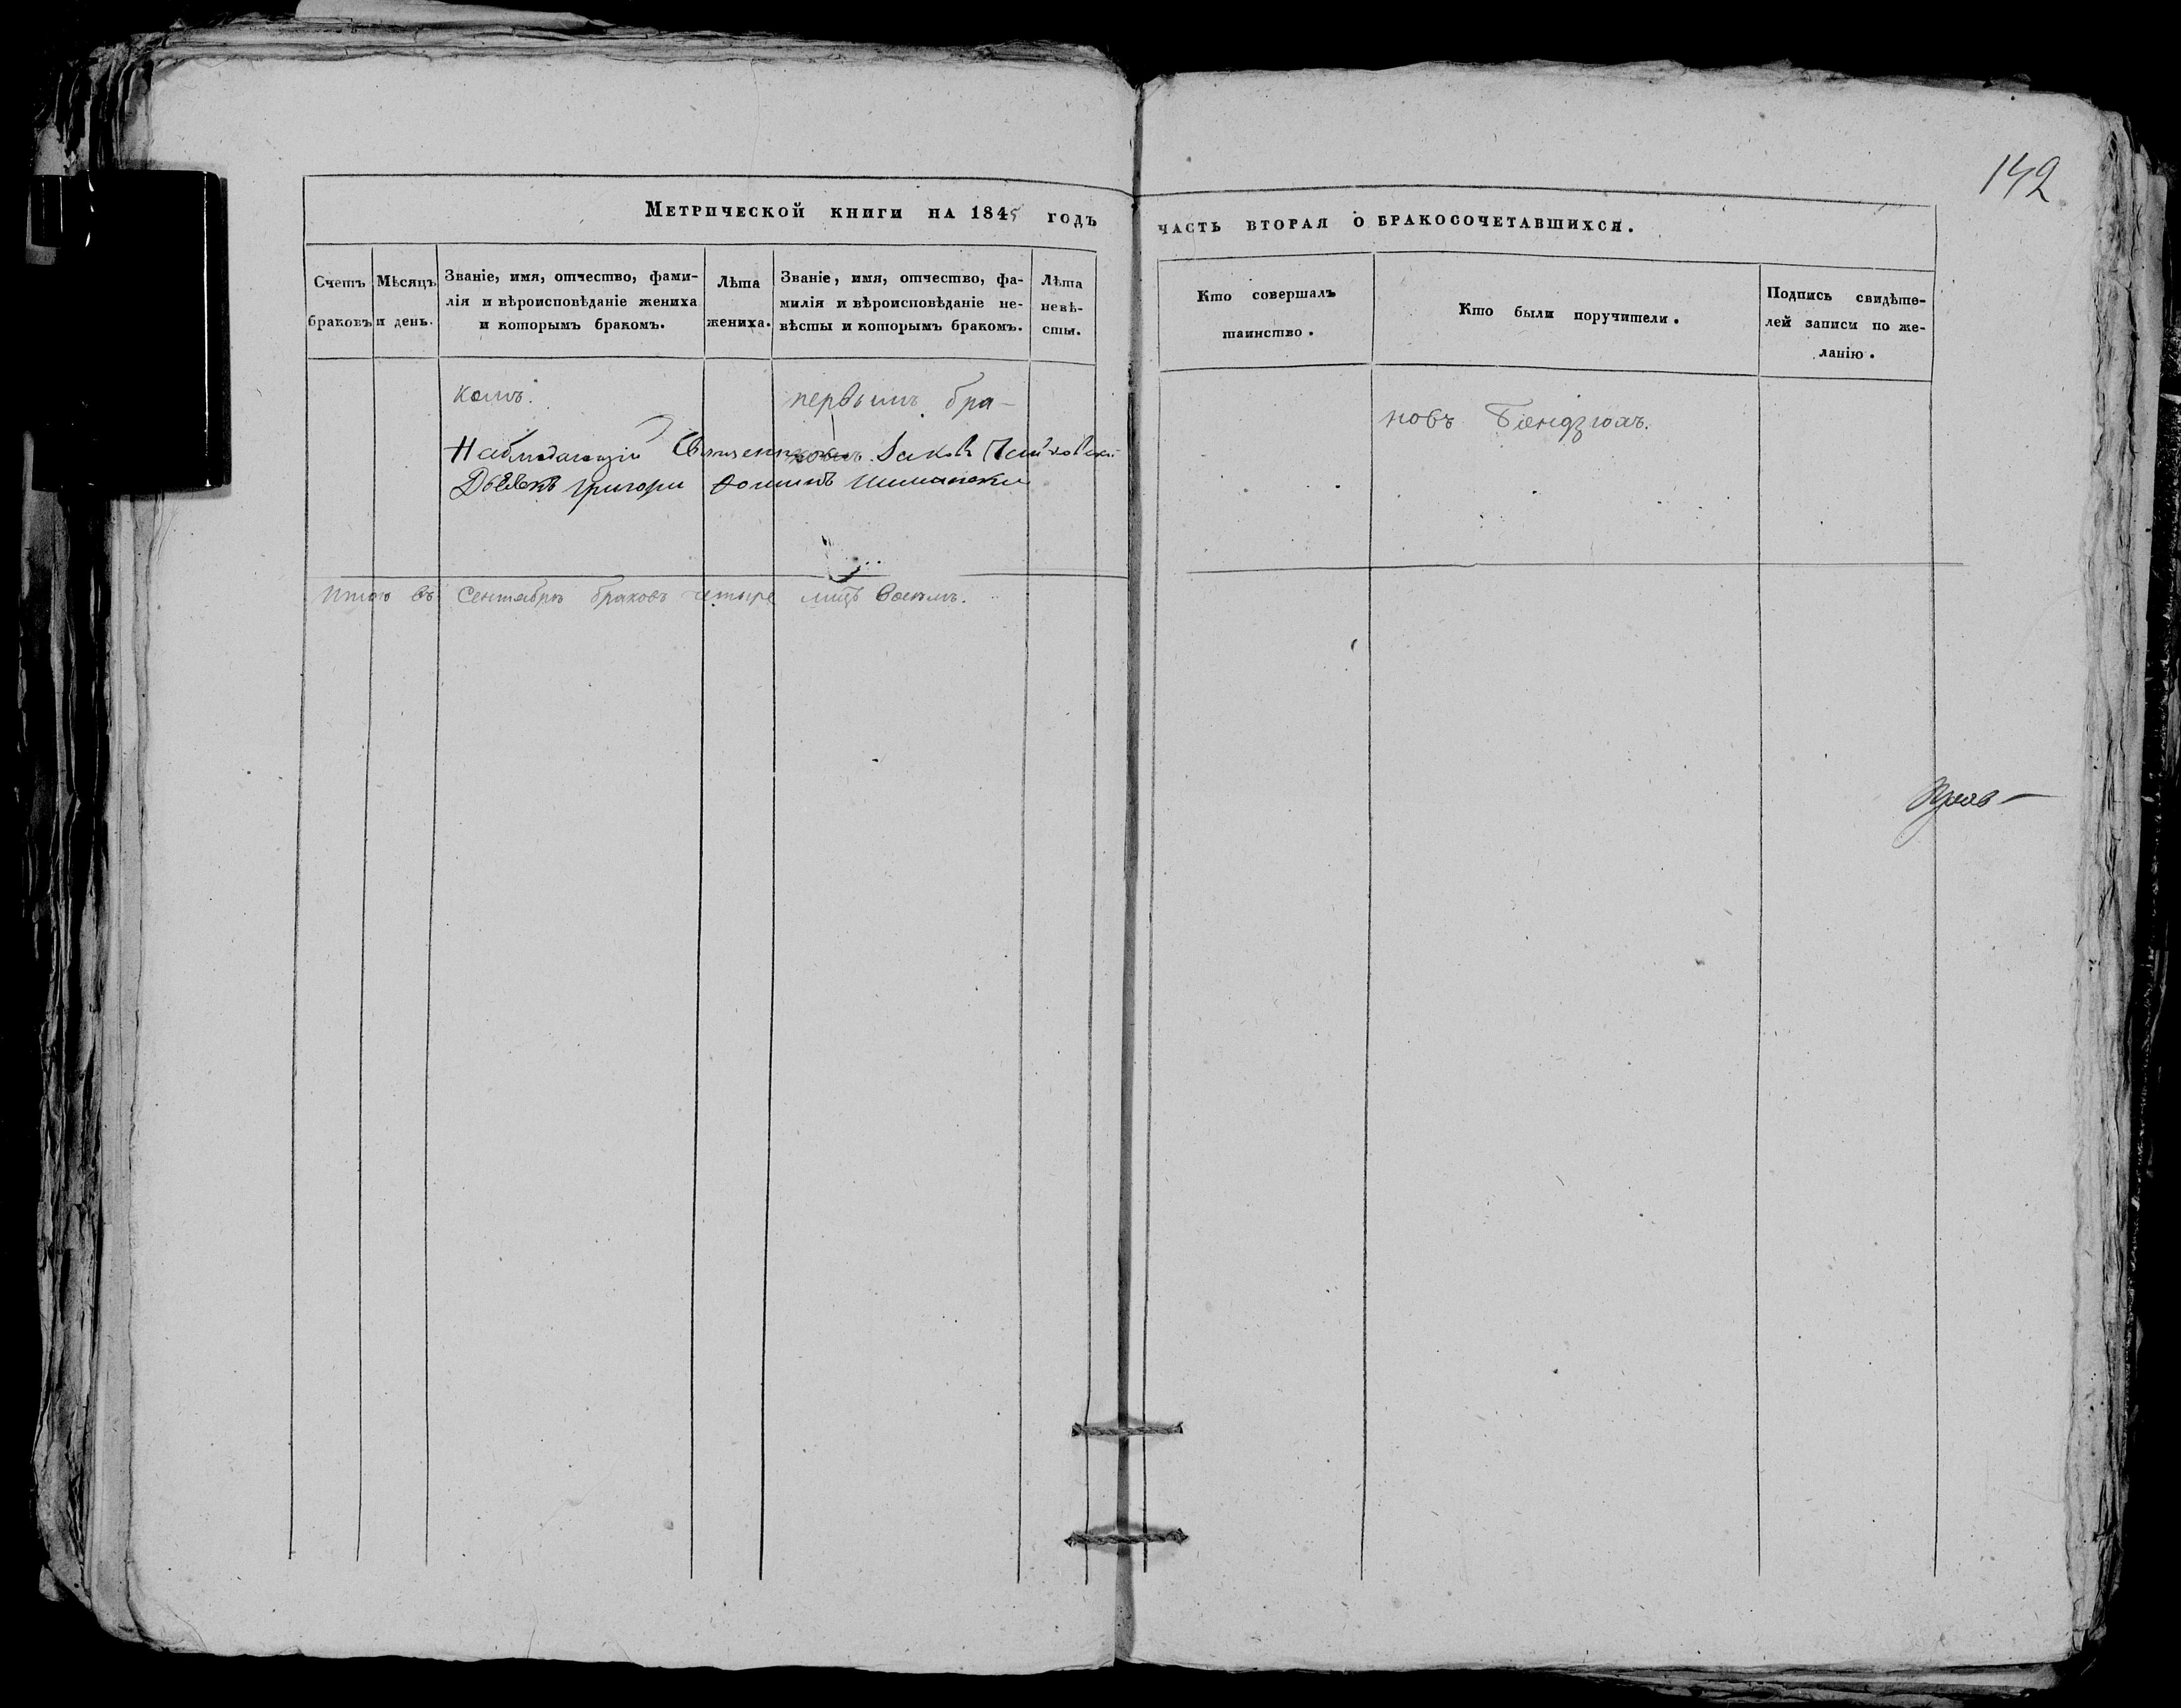 142
Метрической книги на 1845 годъ часть вторая о бракосочетавшихся.
Счетъ браковъ
Мѣсяцъ и день.
Званіе, имя, отчество, фами-
лія и вѣроисповѣданіе жениха
и которымъ бракомъ.
Лѣта
жениха.
Званіе, имя, отчество, фа-
милія и вѣроисповѣданіе не-
вѣсты и которымъ бракомъ.
Лѣта
невѣ-
сты.
Кто совершалъ
таинство.
Кто были поручители.
Подпись свидѣте-
лей записи по же-
ланію.
комъ.
первымъ бра-
новъ Бендзюхъ.
Григори
Итого въ Сентябрѣ браковъ четыре лицъ восемъ.